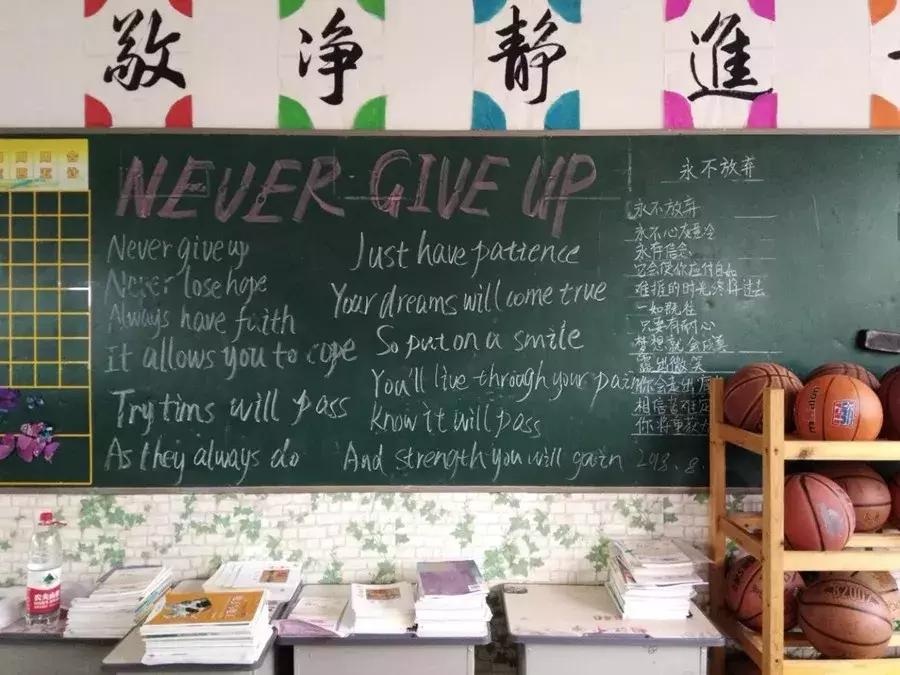 敬 净 静 進
NEVER GIVE UP
Never give up
Never lose hope
Always have faith
It allows you to cope
Try tims will pass
As they always do
Just have patience
Your dreams will come true
So put on a smile
You'll live through your pain
Know it will pass
And strength you will gain
永不放弃
永不放弃
永不心灰意冷
永存信念
它会使你应付自如
难捱的时光终将过去
一如既往
只要有耐心
梦想就会成真
露出微笑
你会走出
相信苦难定
你将重获